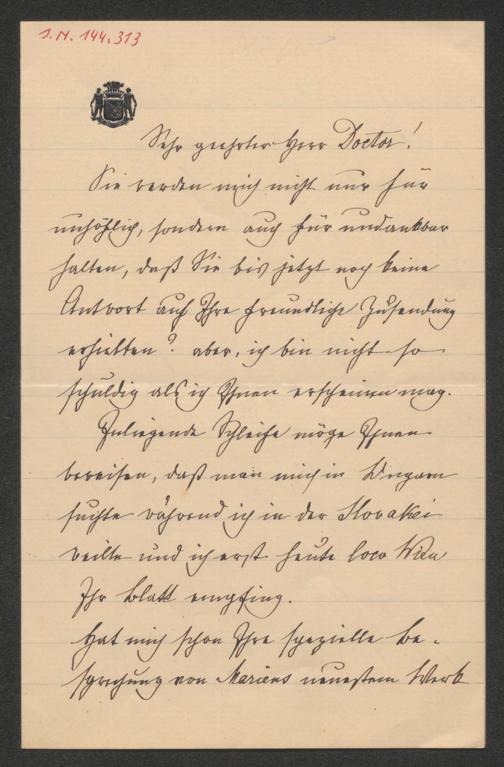 J.N. 144.313
Sehr geehrter Herr Doctor!
Sie werden mich nicht nur für
unhöflich, sondern auch für undankbar
halten, daß Sie bis jetzt noch keine
Antwort auf Ihre freundliche Zusendung
erhielten? aber, ich bin nicht so
schuldig als ich Ihnen erscheinen mag.
Inliegende Schleife möge Ihnen
beweisen, daß man mich in Ungarn
suchte während ich in der Slovakei
weilte und ich erst heute loco Wien
Ihr Blatt empfing.
Hat mich schon Ihre spezielle Be-
sprechung von Mariens neuestem Werk